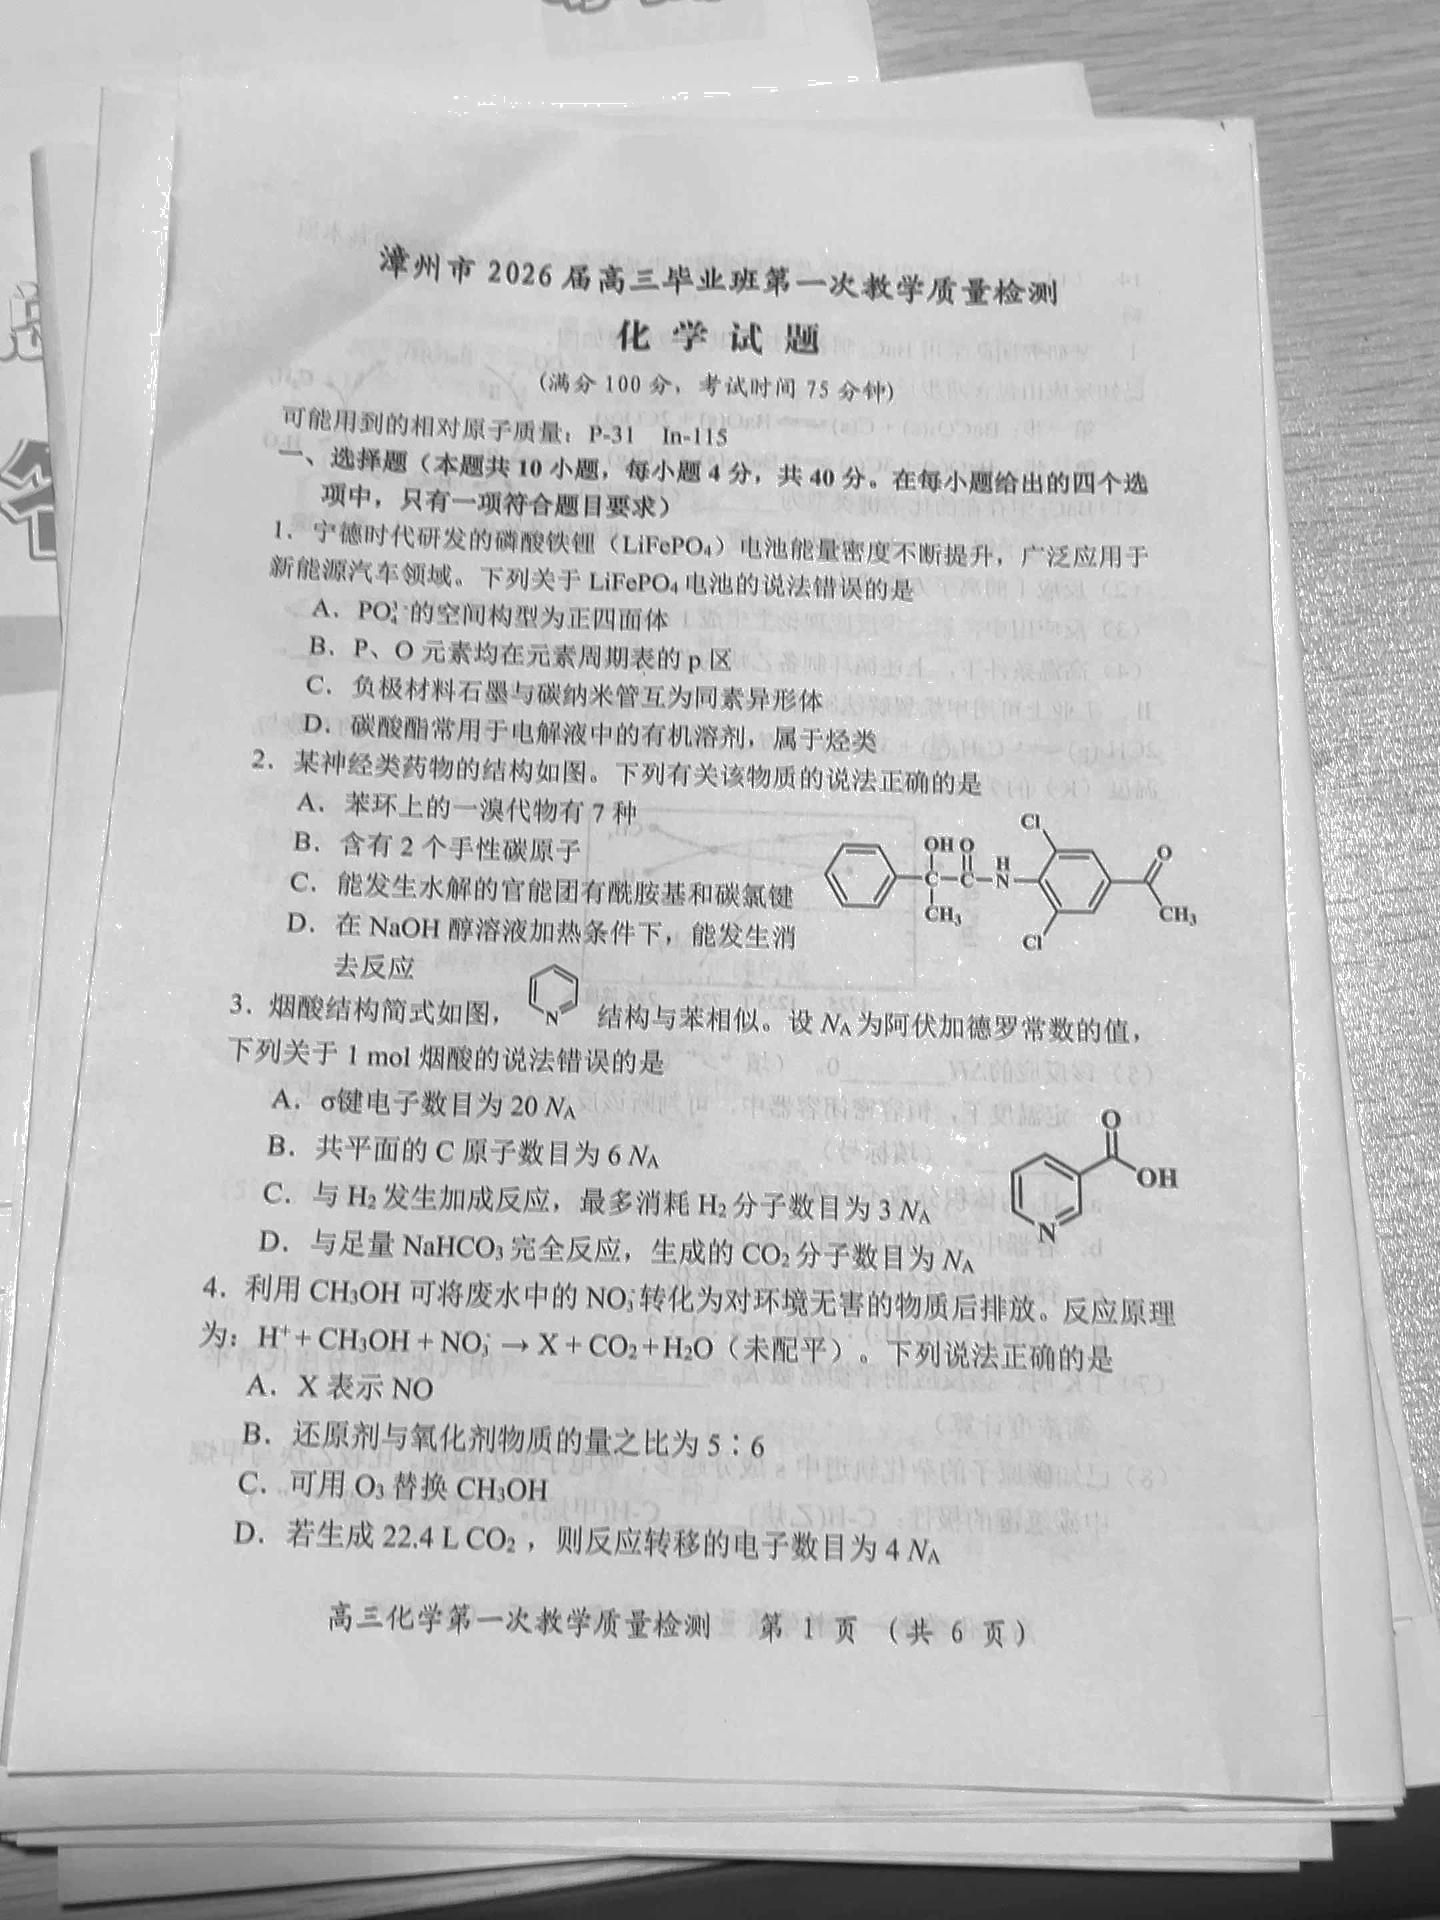 漳州市 2026 届高三毕业班第一次教学质量检测
化 学 试 题
(满分 100 分，考试时间 75 分钟)
可能用到的相对原子质量：P-31 In-115
一、选择题（本题共 10 小题，每小题 4 分，共 40 分。在每小题给出的四个选
项中，只有一项符合题目要求）
1．宁德时代研发的磷酸铁锂（LiFePO₄）电池能量密度不断提升，广泛应用于
新能源汽车领域。下列关于 LiFePO₄ 电池的说法错误的是
A．PO₄³⁻的空间构型为正四面体
B．P、O 元素均在元素周期表的 p 区
C．负极材料石墨与碳纳米管互为同素异形体
D．碳酸酯常用于电解液中的有机溶剂，属于烃类
2．某神经类药物的结构如图。下列有关该物质的说法正确的是
A．苯环上的一溴代物有 7 种
B．含有 2 个手性碳原子
C．能发生水解的官能团有酰胺基和碳氯键
D．在 NaOH 醇溶液加热条件下，能发生消
去反应
OH O
C—C—N
H
CH₃
Cl
Cl
O
CH₃
3．烟酸结构简式如图， N 结构与苯相似。设 Nᴀ 为阿伏加德罗常数的值，
下列关于 1 mol 烟酸的说法错误的是
A．σ键电子数目为 20 Nᴀ
B．共平面的 C 原子数目为 6 Nᴀ
C．与 H₂ 发生加成反应，最多消耗 H₂ 分子数目为 3 Nᴀ
D．与足量 NaHCO₃ 完全反应，生成的 CO₂ 分子数目为 Nᴀ
O
OH
N
4．利用 CH₃OH 可将废水中的 NO₃⁻转化为对环境无害的物质后排放。反应原理
为：H⁺ + CH₃OH + NO₃⁻ → X + CO₂+H₂O（未配平）。下列说法正确的是
A．X 表示 NO
B．还原剂与氧化剂物质的量之比为 5∶6
C．可用 O₃ 替换 CH₃OH
D．若生成 22.4 L CO₂，则反应转移的电子数目为 4 Nᴀ
高三化学第一次教学质量检测 第 1 页 （共 6 页）